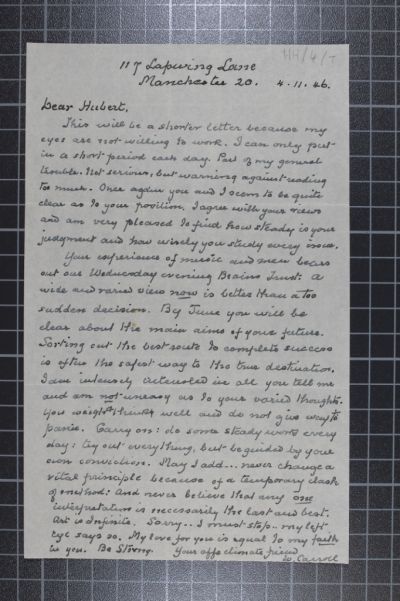 HH/4/7
117 Lapwing Lane
Manchester 20. 4.11.46.
Dear Hubert,
This will be a shorter letter because my
eyes are not willing to work. I can only put
in a short period each day. Part of my general
trouble. Not serious, but warning against reading
too much. Once again you and I seem to be quite
clear as to your position. I agree with your views
and am very pleased to find how steady is your
judgment and how wisely you study every issue.
Your experience of music and men bears
out our Wednesday evening Brains Trust: a
wide and varied view now is better than a too
sudden decision. By June you will be
clear about the main aims of your future.
Sorting out the best route to complete success
is often the safest way to the true destination.
I am intensely interested in all you tell me
and am not uneasy as to your varied thoughts.
You weigh things well and do not give way to
panic. Carry on: do some steady work every
day: try out everything, but be guided by your
own convictions. May I add... never change a
vital principle because of a temporary clash
of method: And never believe that any one
interpretation is necessarily the last and best.
Art is infinite. Sorry.. I must stop.. my left
eye says so. My love for you is equal to my faith
in you. Be Strong. Your affectionate friend
W. Carroll